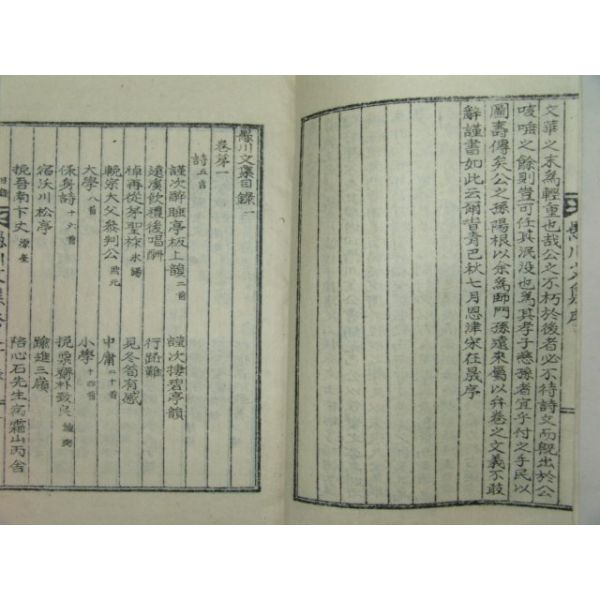 文華之末爲輕重也哉公之不朽於後者必不待詩文而旣出於公
咳唾之餘則豈可任其泯没也爲其孝子慈孫者宜乎付之手民以
圖壽傳矣公之孫陽根以余爲師門孫遠來屬以弁卷之文義不敢
辭謹書如此云爾昔靑巳秋七月恩津宋在晟序
愚川文集序
愚川文集目錄一
卷第一
詩五言
謹次醉睡亭板上韻二首
謹次棲碧亭韻
遠溪飮禮後唱酬
行路難
悼再從弟聖粹永錫
見冬筍有感
輓宗大父參判公
中庸二十首
大學八首
小學十四首
保身詩十六首
挽宗斯朴致良
宿沃川松亭
蹄進三嶺
挽吾南卞丈
陪心石先生宿霜山丙舍
愚川文集卷之一
目錄